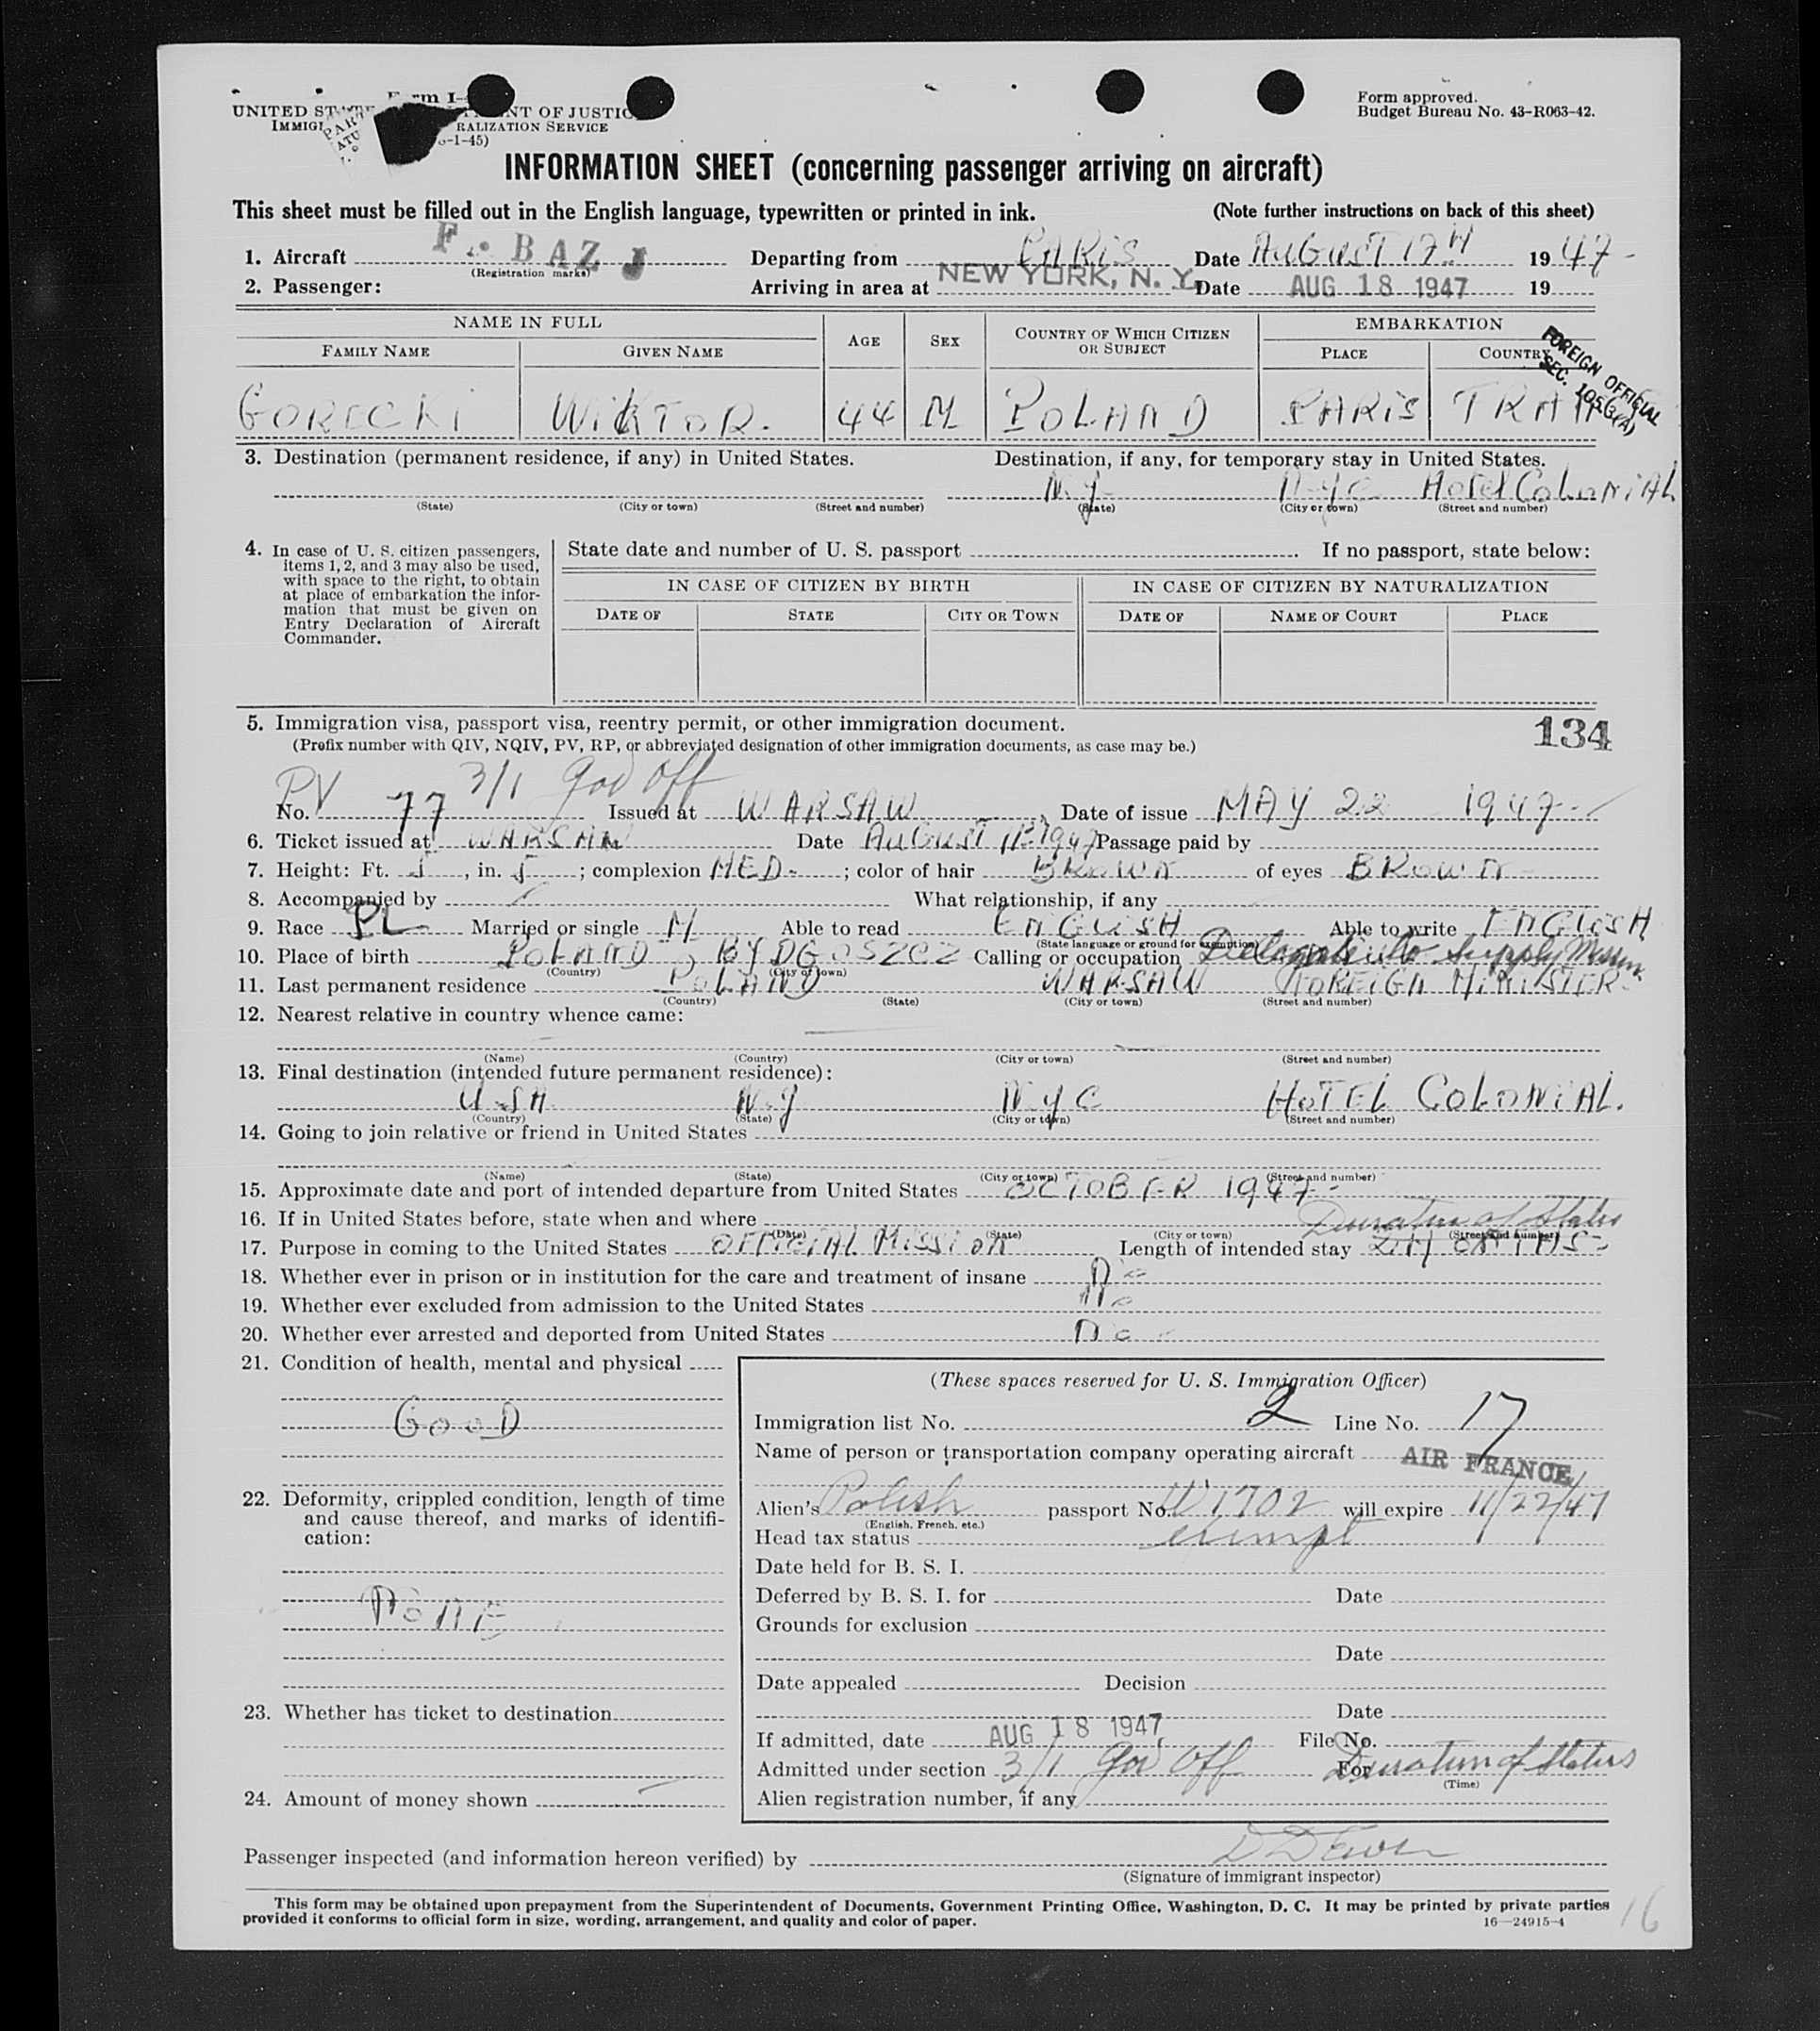 Form I-
UNITED ST NT OF JUSTIC
IMMIGI RALIZATION SERVICE
-1-45)
Form approved.
Budget Bureau No. 43-R063-42.
INFORMATION SHEET (concerning passenger arriving on aircraft)
This sheet must be filled out in the English language, typewritten or printed in ink. (Note further instructions on back of this sheet)
1. Aircraft F. BAZ J Departing from PARIS Date AUGUST 17TH 1947-
(Registration marks)
2. Passenger: Arriving in area at NEW YORK, N. Y. Date AUG 18 1947 19
NAME IN FULL AGE SEX COUNTRY OF WHICH CITIZEN OR SUBJECT EMBARKATION
FAMILY NAME GIVEN NAME PLACE COUNTRY
FOREIGN OFFICIAL
SEC.
GORECKI WIKTOR. 44 M POLAND PARIS
3. Destination (permanent residence, if any) in United States. Destination, if any, for temporary stay in United States.
N.Y- N.Y.C Hotel COLONIAL
(State) (City or town) (Street and number) (State) (City or town) (Street and number)
4. In case of U. S. citizen passengers, items 1, 2, and 3 may also be used, with space to the right, to obtain at place of embarkation the information that must be given on Entry Declaration of Aircraft Commander.
State date and number of U. S. passport . If no passport, state below:
IN CASE OF CITIZEN BY BIRTH IN CASE OF CITIZEN BY NATURALIZATION
DATE OF STATE CITY OR TOWN DATE OF NAME OF COURT PLACE
5. Immigration visa, passport visa, reentry permit, or other immigration document. 134
(Prefix number with QIV, NQIV, PV, RP, or abbreviated designation of other immigration documents, as case may be.)
PV 3/1 gov off
No. 77 Issued at WARSAW, Date of issue MAY 22 1947
6. Ticket issued at WARSAW Date AUGUST 1947 Passage paid by
7. Height: Ft. 5, in. 5; complexion MED-; color of hair BROWN of eyes BROWN
8. Accompanied by What relationship, if any
9. Race PL Married or single M Able to read ENGLISH Able to write ENGLISH
(State language or ground for exemption)
10. Place of birth POLAND, BYDGOSZCZ Calling or occupation Supply Mission
(Country) (City or town)
11. Last permanent residence POLAND WARSAW FOREIGN MINISTER
(Country) (State) (City or town) (Street and number)
12. Nearest relative in country whence came:
(Name) (Country) (City or town) (Street and number)
13. Final destination (intended future permanent residence):
USA N.Y N.Y.C HOTEL COLONIAL.
(Country) (State) (City or town) (Street and number)
14. Going to join relative or friend in United States
(Name) (State) (City or town) (Street and number)
15. Approximate date and port of intended departure from United States OCTOBER 1947-
16. If in United States before, state when and where
Duration of Status
(Date) (State) (City or town) (Street and number)
17. Purpose in coming to the United States OFFICIAL MISSION Length of intended stay 2 MONTHS-
18. Whether ever in prison or in institution for the care and treatment of insane No
19. Whether ever excluded from admission to the United States No
20. Whether ever arrested and deported from United States No
21. Condition of health, mental and physical
GOOD
22. Deformity, crippled condition, length of time and cause thereof, and marks of identification:
NONE
23. Whether has ticket to destination
24. Amount of money shown
(These spaces reserved for U. S. Immigration Officer)
Immigration list No. 2 Line No. 17
Name of person or transportation company operating aircraft AIR FRANCE
Alien's Polish passport No. 1702 will expire 11/22/47
(English, French, etc.)
Head tax status exempt
Date held for B. S. I.
Deferred by B. S. I. for Date
Grounds for exclusion
Date
Date appealed Decision
Date
If admitted, date AUG 18 1947 File No.
Admitted under section 3/1 Gov Off For Duration of Status
(Time)
Alien registration number, if any
Passenger inspected (and information hereon verified) by
(Signature of immigrant inspector)
This form may be obtained upon prepayment from the Superintendent of Documents, Government Printing Office, Washington, D. C. It may be printed by private parties
provided it conforms to official form in size, wording, arrangement, and quality and color of paper. 16—24915-4
16